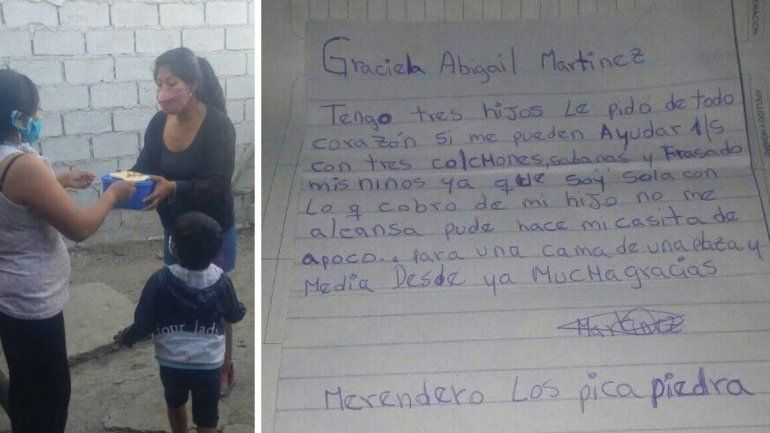 Graciela Abigail Martinez
Tengo tres hijos Le pido de todo
corazón si me pueden Ayudar 1/s
con tres colcHones, sabanas y Frasado
mis niños ya que soy sola con
Lo q cobro de mi hijo no me
alcansa pude hace mi casita de
apoco.. para una cama de una plaza y
Media Desde ya MucHa gracias
Martinez
Merendero Los pica piedra